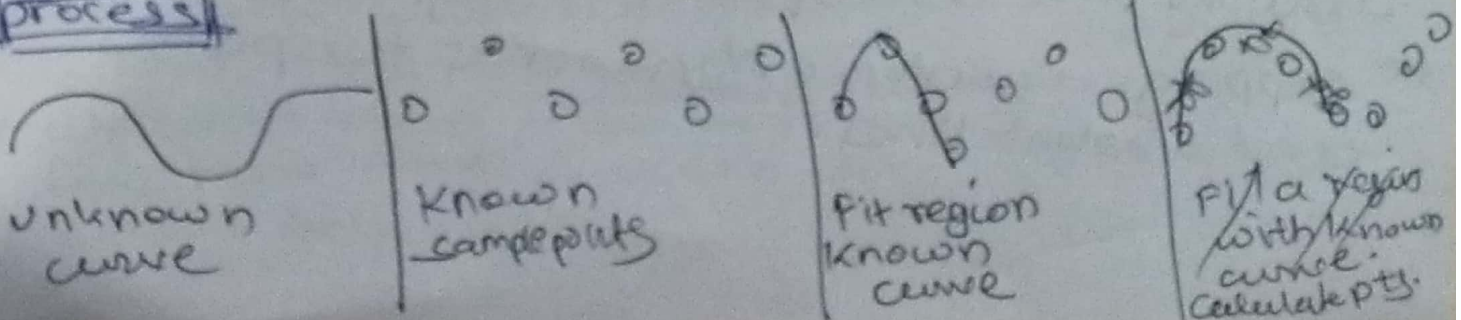 process
unknown
curve
Known
samplepoints
Fit region
Known
curve
Fit a region
with known
curve.
Calculate pts.